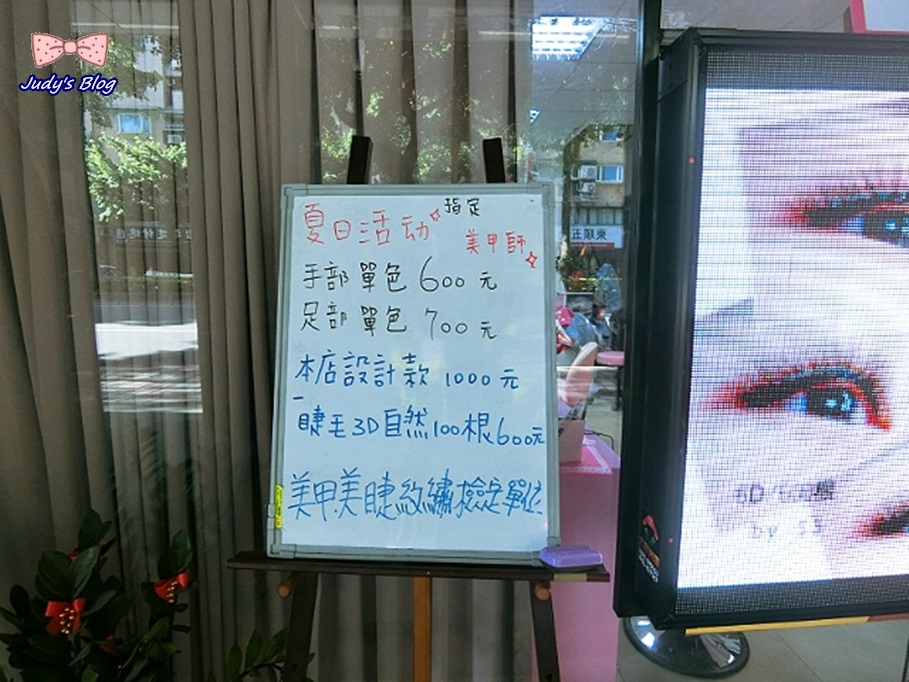 Judy's Blog
夏日活动 指定
美甲師
手部 單色 600 元
足部 單色 700 元
本店設計款 1000 元
睫毛3D自然100根600元
美甲美睫紋繡檢定單位